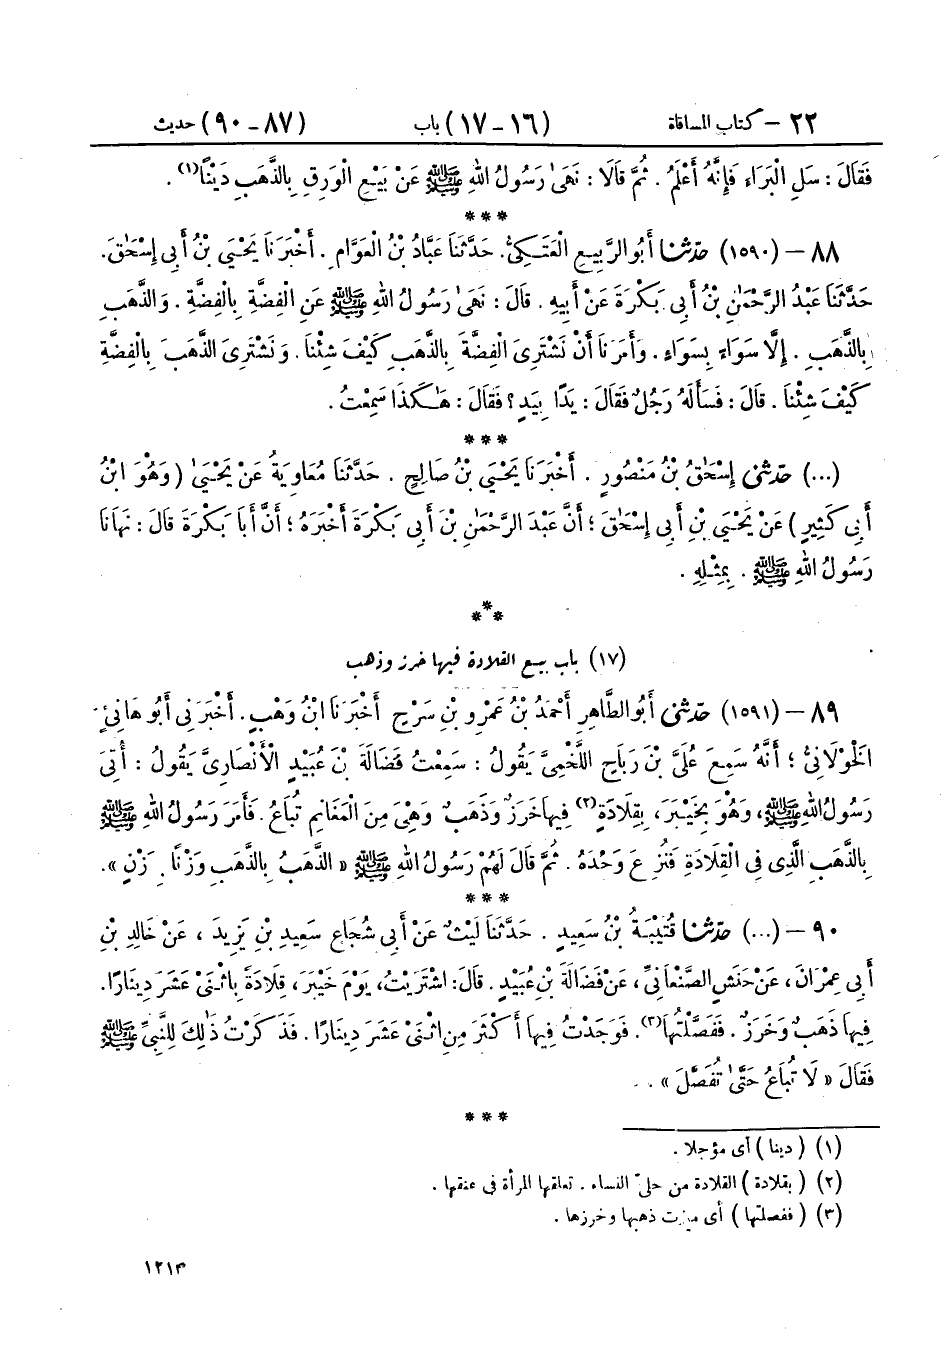 ٢٢ – كتاب المساقاة (١٦–١٧) باب (٨٧–٩٠) حديث
فَقَالَ : سَلِ الْبَرَاءَ فَإِنَّهُ أَعْلَمُ . ثُمَّ قَالَا : نَهَىٰ رَسُولُ اللهِ ﷺ عَنْ بَيْعِ الْوَرِقِ بِالذَّهَبِ دَيْنًا(١) .
***
٨٨ – (١٥٩٠) حَدَّثَنَا أَبُو الرَّبِيعِ الْعَتَكِيُّ. حَدَّثَنَا عَبَّادُ بْنُ الْعَوَّامِ. أَخْبَرَنَا يَحْيَىٰ بْنُ أَبِي إِسْحَاقَ.
حَدَّثَنَا عَبْدُ الرَّحْمَٰنِ بْنُ أَبِي بَكْرَةَ عَنْ أَبِيهِ . قَالَ : نَهَىٰ رَسُولُ اللهِ ﷺ عَنِ الْفِضَّةِ بِالْفِضَّةِ . وَالذَّهَبِ
بِالذَّهَبِ . إِلَّا سَوَاءً بِسَوَاءٍ . وَأَمَرَنَا أَنْ نَشْتَرِىَ الْفِضَّةَ بِالذَّهَبِ كَيْفَ شِئْنَا . وَنَشْتَرِىَ الذَّهَبَ بِالْفِضَّةِ
كَيْفَ شِئْنَا . قَالَ : فَسَأَلَهُ رَجُلٌ فَقَالَ : يَدًا بِيَدٍ ؟ فَقَالَ : هَٰكَذَا سَمِعْتُ .
***
(...) حَدَّثَنِي إِسْحَاقُ بْنُ مَنْصُورٍ . أَخْبَرَنَا يَحْيَىٰ بْنُ صَالِحٍ . حَدَّثَنَا مُعَاوِيَةُ عَنْ يَحْيَىٰ ( وَهُوَ ابْنُ
أَبِي كَثِيرٍ ) عَنْ يَحْيَىٰ بْنِ أَبِي إِسْحَاقَ ؛ أَنَّ عَبْدَ الرَّحْمَٰنِ بْنَ أَبِي بَكْرَةَ أَخْبَرَهُ ؛ أَنَّ أَبَا بَكْرَةَ قَالَ : نَهَانَا
رَسُولُ اللهِ ﷺ . بِمِثْلِهِ .
***
(١٧) باب بيع القلادة فيها خرز وذهب
٨٩ – (١٥٩١) حَدَّثَنِي أَبُو الطَّاهِرِ أَحْمَدُ بْنُ عَمْرِو بْنِ سَرْحٍ أَخْبَرَنَا ابْنُ وَهْبٍ. أَخْبَرَنِي أَبُو هَانِئٍ
الْخَوْلَانِيُّ ؛ أَنَّهُ سَمِعَ عُلَيَّ بْنَ رَبَاحٍ اللَّخْمِيَّ يَقُولُ : سَمِعْتُ فَضَالَةَ بْنَ عُبَيْدٍ الْأَنْصَارِىَّ يَقُولُ : أُتِىَ
رَسُولُ اللهِ ﷺ، وَهُوَ بِخَيْبَرَ، بِقِلَادَةٍ(٢) فِيهَا خَرَزٌ وَذَهَبٌ وَهِىَ مِنَ الْمَغَانِمِ تُبَاعُ. فَأَمَرَ رَسُولُ اللهِ ﷺ
بِالذَّهَبِ الَّذِى فِي الْقِلَادَةِ فَنُزِعَ وَحْدَهُ . ثُمَّ قَالَ لَهُمْ رَسُولُ اللهِ ﷺ « الذَّهَبُ بِالذَّهَبِ وَزْنًا بِوَزْنٍ ».
***
٩٠ – (...) حَدَّثَنَا قُتَيْبَةُ بْنُ سَعِيدٍ . حَدَّثَنَا لَيْثٌ عَنْ أَبِي شُجَاعٍ سَعِيدِ بْنِ يَزِيدَ ، عَنْ خَالِدِ بْنِ
أَبِي عِمْرَانَ، عَنْ حَنَشٍ الصَّنْعَانِيِّ، عَنْ فَضَالَةَ بْنِ عُبَيْدٍ. قَالَ: اشْتَرَيْتُ، يَوْمَ خَيْبَرَ، قِلَادَةً بِاثْنَىْ عَشَرَ دِينَارًا.
فِيهَا ذَهَبٌ وَخَرَزٌ . فَفَصَّلْتُهَا(٣). فَوَجَدْتُ فِيهَا أَكْثَرَ مِنِ اثْنَىْ عَشَرَ دِينَارًا. فَذَكَرْتُ ذَٰلِكَ لِلنَّبِيِّ ﷺ
فَقَالَ « لَا تُبَاعُ حَتَّىٰ تُفَصَّلَ » .
***
(١) ( دينا ) أى مؤجلا .
(٢) ( بقلادة ) القلادة من حلىّ النساء . تعلقها المرأة فى عنقها .
(٣) ( ففصلتها ) أى ميزت ذهبها وخرزها .
١٢١٣